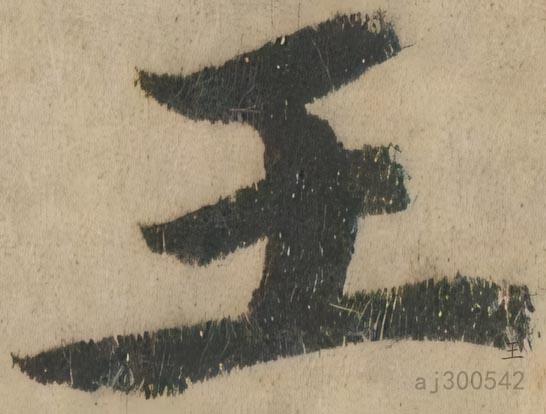 王
王
aj300542